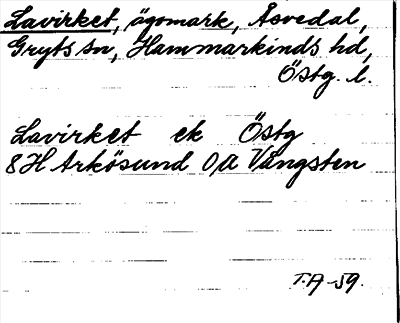 Lavirket, ägomark, Åsvedal,
Gryts sn, Hammarkinds hd,
Östg. l.
Lavirket ek Östg
8H Arkösund 0,a Vångsten
T.A -59.